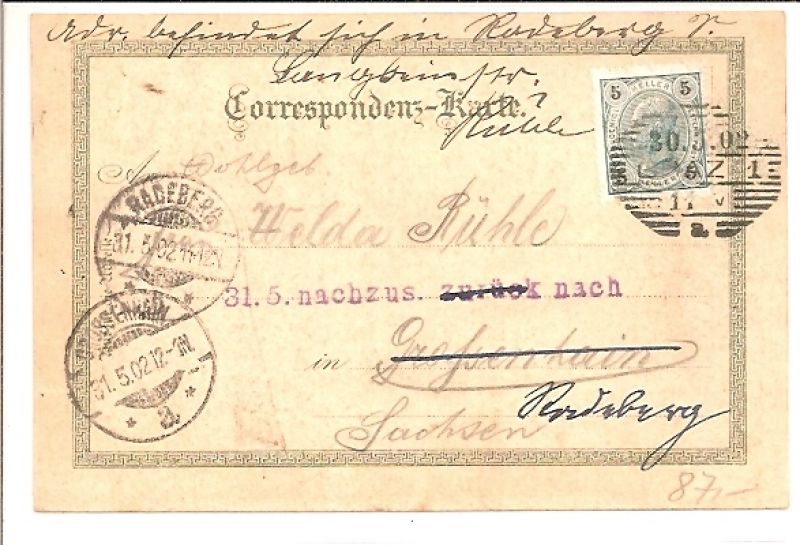 Adr. befindet sich in Radeberg S.
Langbeinstr.
Correspondenz-Karte.
Rühle
An Wohlgeb
Welda Rühle
31.5. nachzus. zurück nach
in Großenhain
Radeberg
Sachsen
5 HELLER 5
30.5.02
1
11 V
a
RADEBERG
31.5.02 11-12V.
a
GROSSENHAIN
31.5.02 12-1N.
a.
87,-